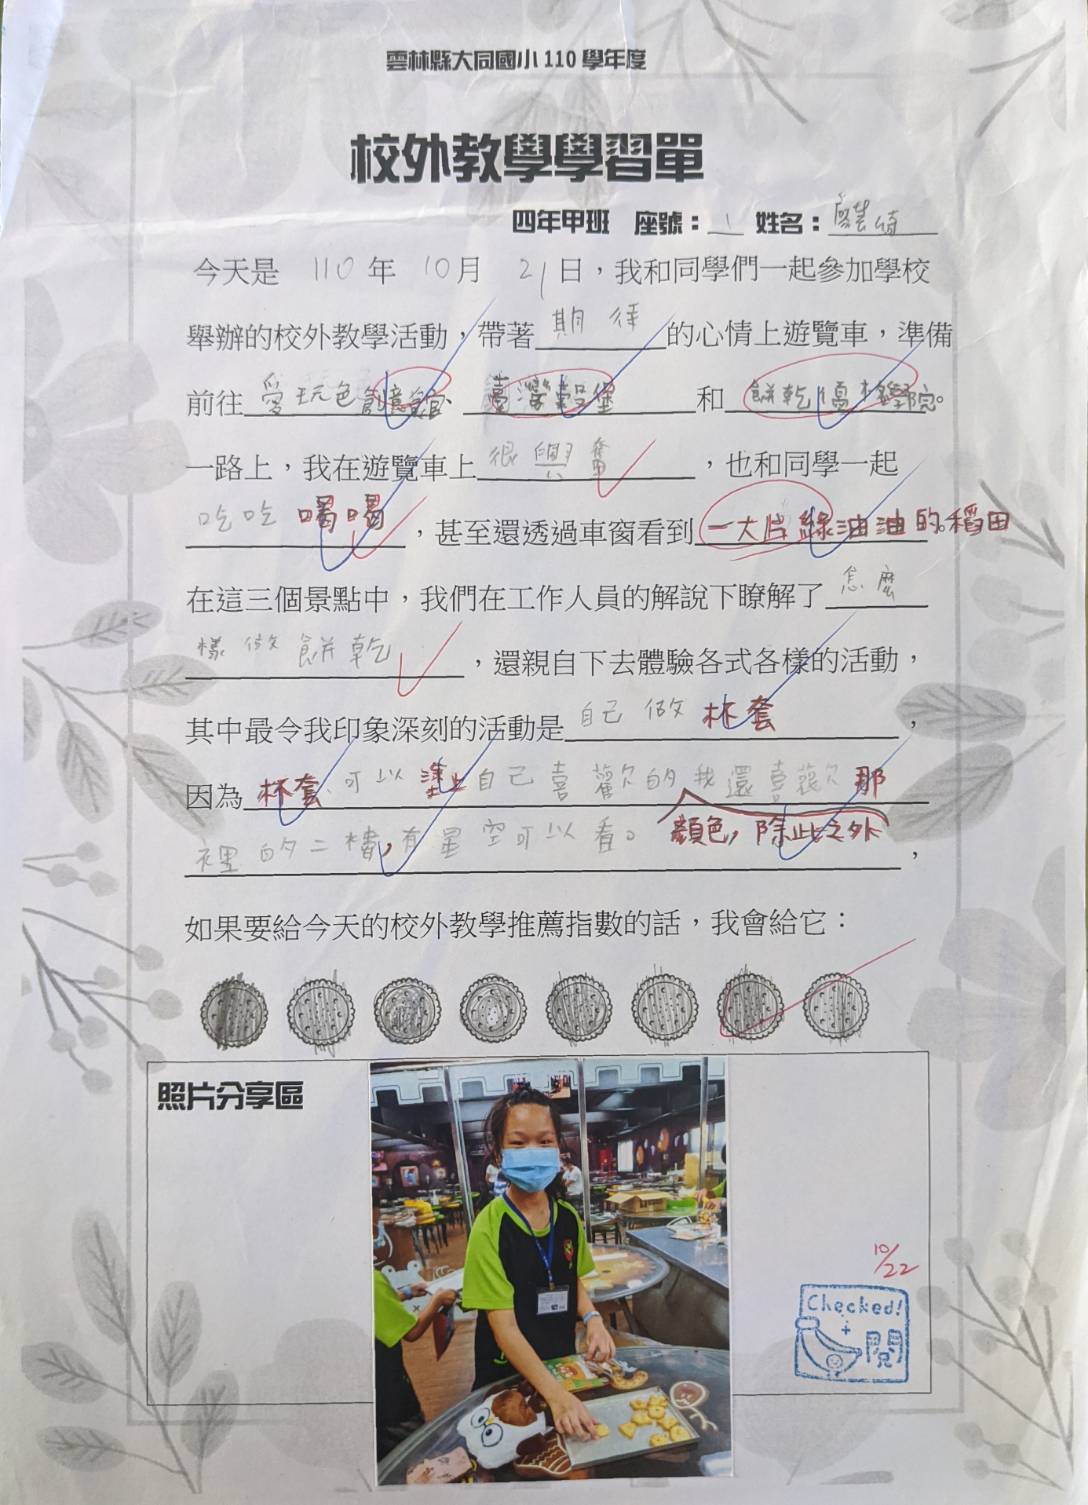 雲林縣大同國小110學年度
校外教學學習單
四年甲班 座號：1 姓名：
今天是 110 年 10月 21日，我和同學們一起參加學校
舉辦的校外教學活動，帶著期待的心情上遊覽車，準備
前往愛玩色創意館、臺灣穀堡和餅乾優格學院。
一路上，我在遊覽車上很興奮，也和同學一起
吃吃喝喝，甚至還透過車窗看到一大片綠油油的稻田。
在這三個景點中，我們在工作人員的解說下瞭解了怎麼
樣做餅乾，還親自下去體驗各式各樣的活動，
其中最令我印象深刻的活動是自己做杯套，
因為杯套可以塗上自己喜歡的我還喜歡那
顏色，除此之外
裡的二樓，有星空可以看。，
如果要給今天的校外教學推薦指數的話，我會給它：
照片分享區
10/22
Checked!
+
閱